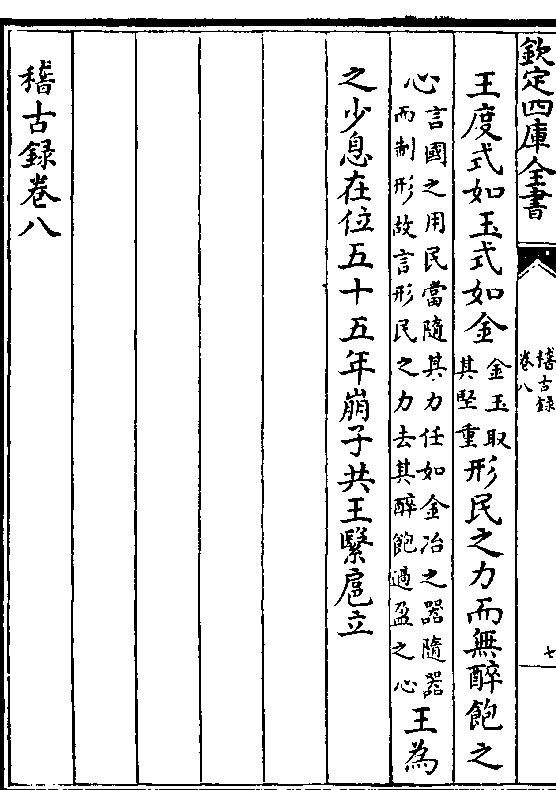 欽定四庫全書
稽古録
卷八
七
王度式如玉式如金金玉取其堅重形民之力而無醉飽之
心言國之用民當隨其力任如金冶之器隨器而制形故言形民之力去其醉飽過盈之心王為
之少息在位五十五年崩子共王繄扈立
稽古録卷八